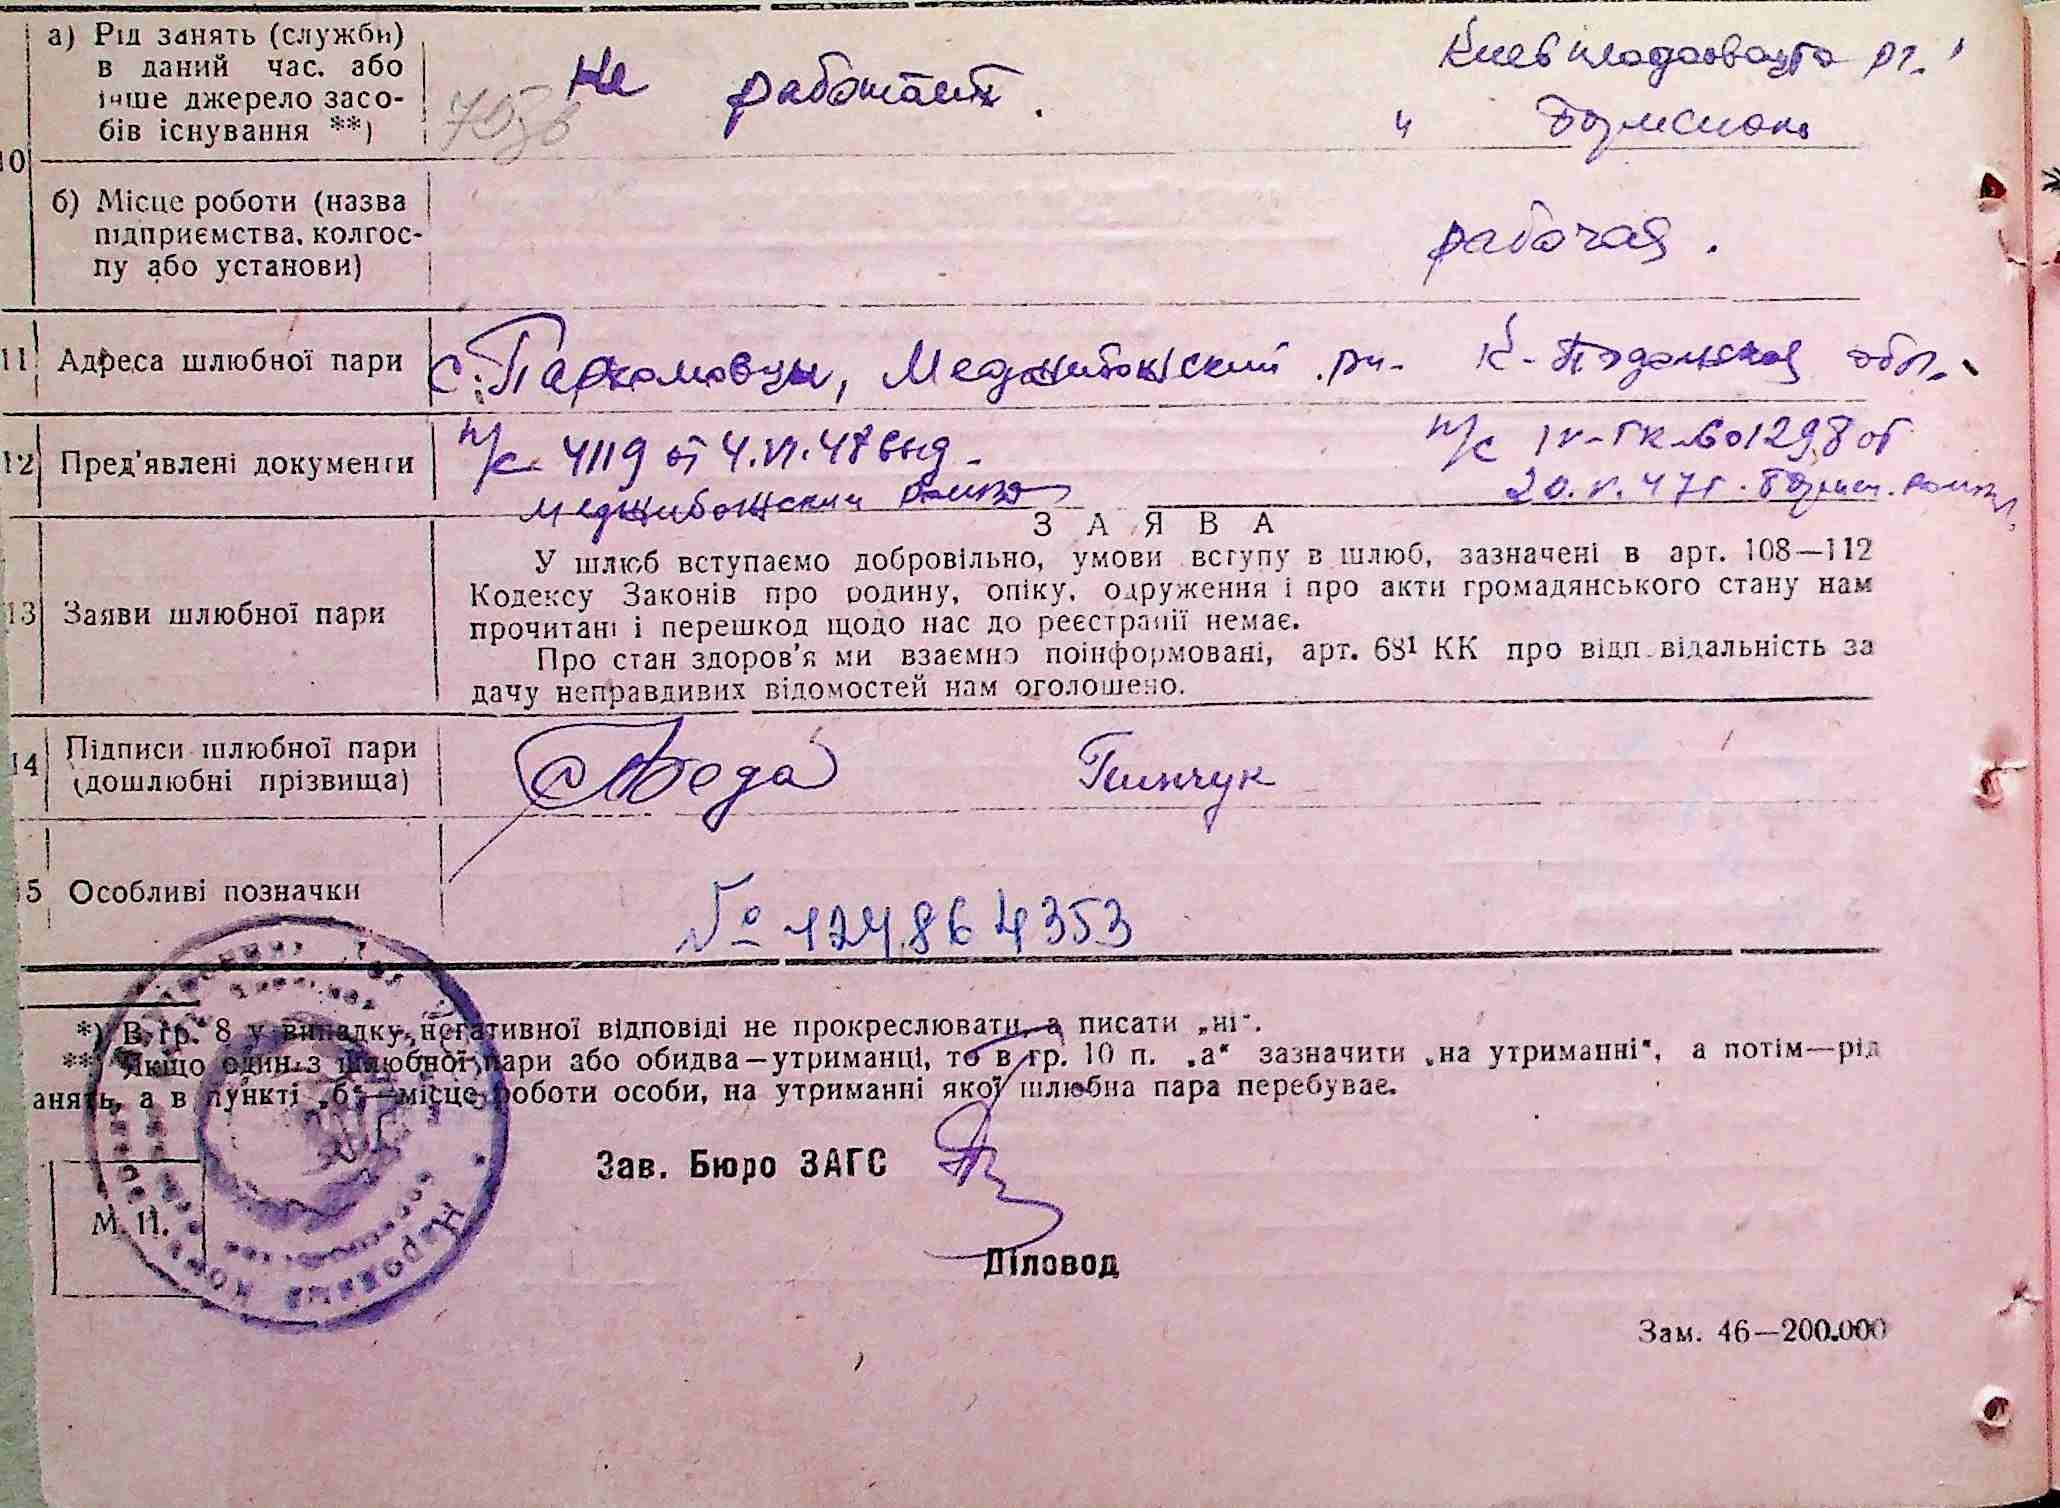 а) Рід занять (служби)
в даний час. або
інше джерело засо-
бів існування **)
Не работает.
Киевплодоовощ
10
б) Місце роботи (назва
підприємства, колгос-
пу або установи)
рабочая.
11 Адреса шлюбної пари
с. Пархомовцы, Меджибожский рн. К-Подольская обл.
12 Пред'явлені документи
п/с 4119 от 4.VI.47 выд.
Меджибожский
п/с IV-ГК №601298 от
20.V.47г.
З А Я В А
У шлюб вступаємо добровільно, умови вступу в шлюб, зазначені в арт. 108—112
Кодексу Законів про родину, опіку, одруження і про акти громадянського стану нам
прочитані і перешкод щодо нас до реєстрації немає.
Про стан здоров'я ми взаємно поінформовані, арт. 68¹ КК про відповідальність за
дачу неправдивих відомостей нам оголошено.
13 Заяви шлюбної пари
14 Підписи шлюбної пари
(дошлюбні прізвища)
Пинчук
5 Особливі позначки
№ 124864353
*) В гр. 8 у випадку негативної відповіді не прокреслювати, а писати „ні".
** Якщо один з шлюбної пари або обидва—утриманці, то в гр. 10 п. „а" зазначити „на утриманні", а потім—рід
анять, а в пункті „б"—місце роботи особи, на утриманні якої шлюбна пара перебуває.
Зав. Бюро ЗАГС
М. П.
Діловод
Зам. 46—200.000